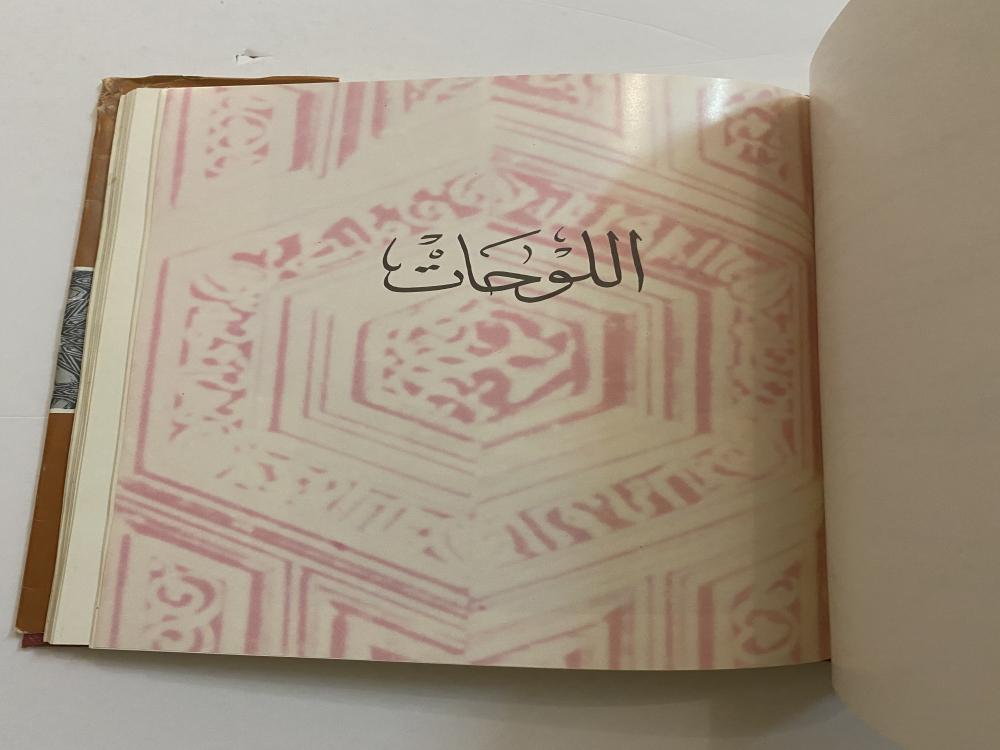 اللوحات